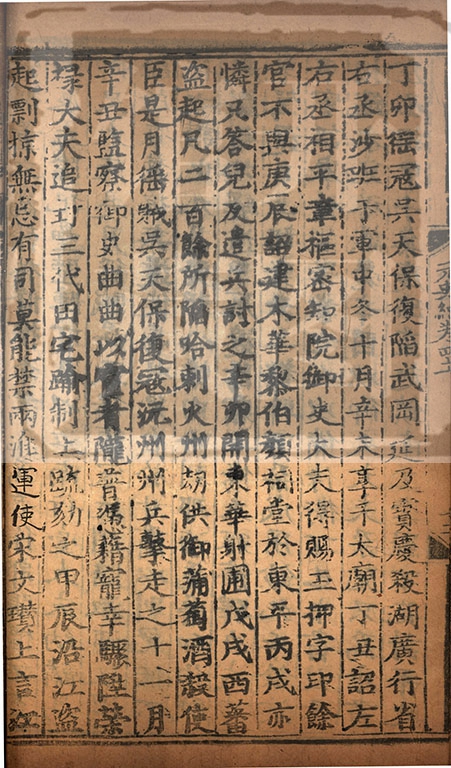 丁卯徭寇吳天保復陷武岡延及寶慶殺湖廣行省
右丞沙班于軍中冬十月辛未享于太廟丁丑詔左
右丞相平章樞密知院御史大夫得賜玉押字印餘
官不與庚辰詔建木華黎伯顏祠堂於東平丙戌亦
憐只答兒反遣兵討之辛卯開東華射圃戊戌西蕃
盜起凡二百餘所陷哈剌火州劫供御蒲萄酒殺使
臣是月徭賊吳天保復寇沅州州兵擊走之十一月
辛丑監察御史曲曲以宦者隴普憑藉寵幸驟陞榮
祿大夫追封三代田宅踰制上疏劾之甲辰沿江盜
起剽掠無忌有司莫能禁兩淮運使宋文瓚上言江